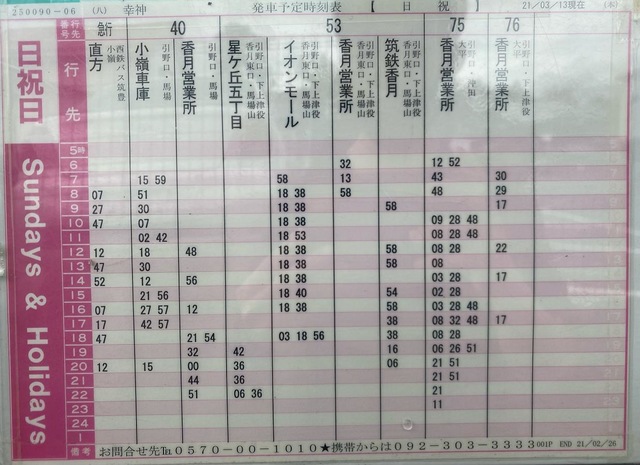 250090-06 (八) 幸神 発車予定時刻表 【 日 祝 】 21/03/13現在 (木)
日祝日
Sundays & Holidays
行先番号 急行 40 53 75 76
行先
直方 小嶺 西鉄バス筑豊
小嶺車庫 引野口・馬場
香月営業所 引野口・馬場
星ケ丘五丁目 引野口・下上津役 香月東口・馬場山
イオンモール 引野口・下上津役 香月東口・馬場山
香月営業所 引野口・下上津役 香月東口・馬場山
筑鉄香月 引野口・下上津役 香月東口・馬場山
香月営業所 引野口・ 大平
香月営業所 引野口・下上津役 大平
5時
6 32 12 52
7 15 59 58 13 43 30
8 07 51 18 38 58 48 29
9 27 30 18 38 58 17
10 47 07 18 38 09 28 48
11 02 42 18 53 08 28 48
12 12 18 48 18 38 58 08 28 22
13 47 30 18 38 58 08
14 52 12 56 18 38 03 28 17
15 21 56 18 40 54 02 28
16 07 27 57 12 18 38 58 03 28 48
17 17 42 57 38 08 32 48 17
18 47 21 54 03 18 56 38 08 28
19 32 42 16 06 26 51
20 12 15 00 36 06 21 51
21 44 36 21 51
22 51 06 36 21
23 11
24
1
備考 お問合せ先℡0570-00-1010★携帯からは092-303-3333 001P END 21/02/26